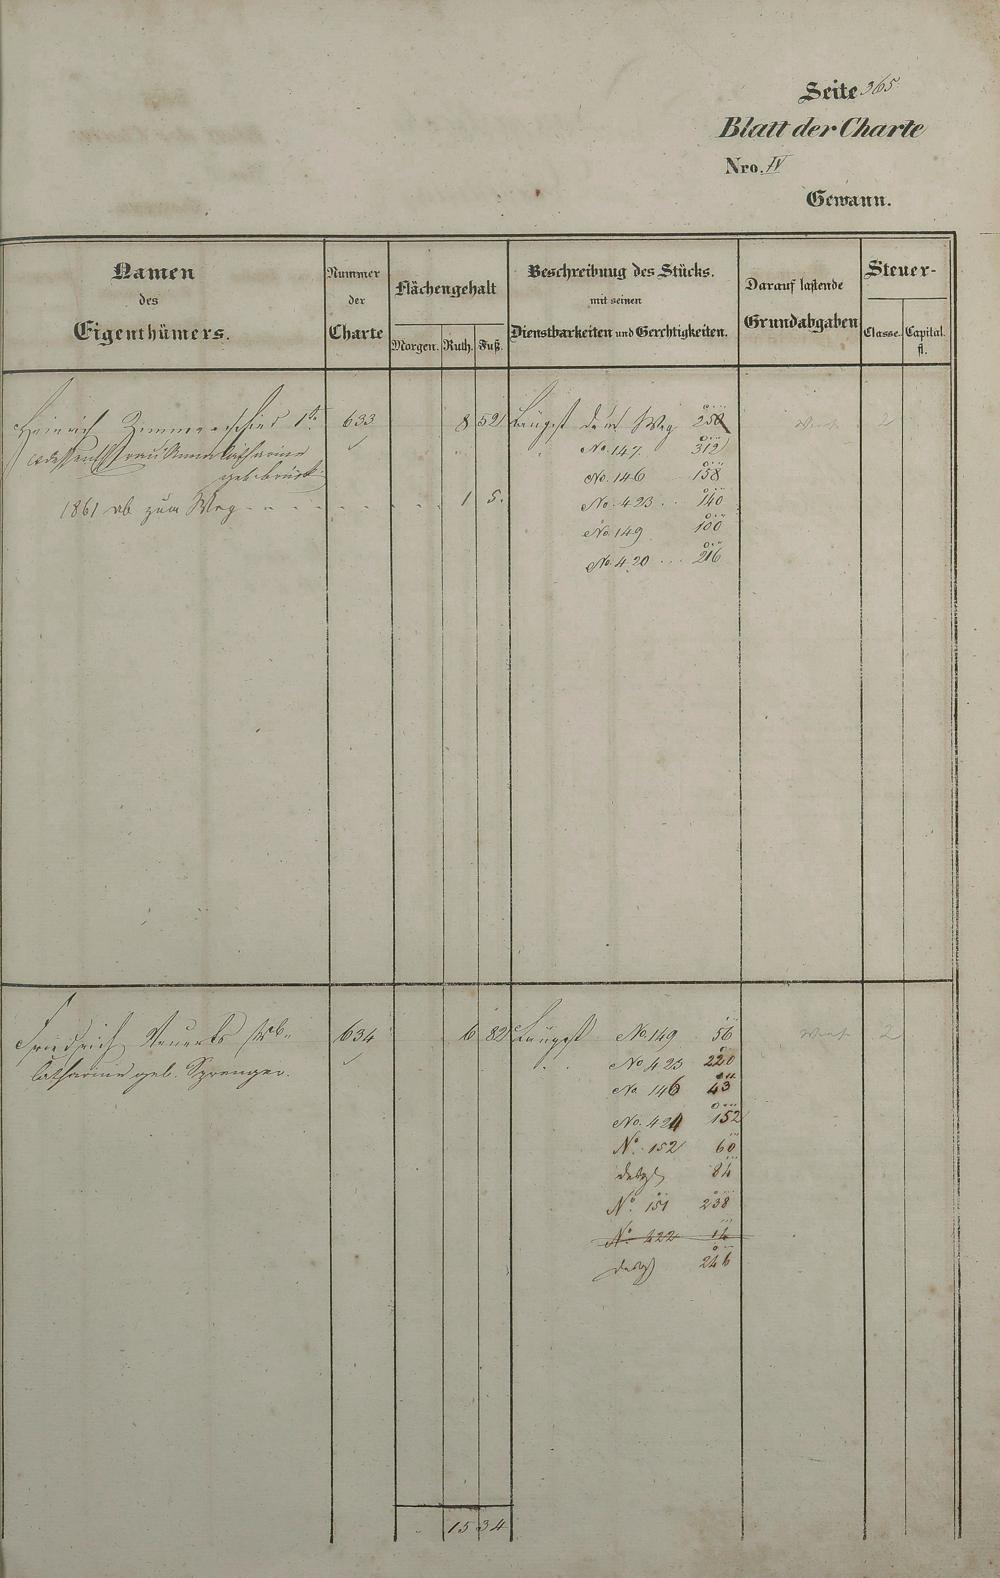 Seite 365
Blatt der Charte
Nro. IV
Gewann.
Namen
des
Eigenthümers.
Nummer
der
Charte
Flächengehalt
Morgen. Ruth. Fuß.
Beschreibung des Stücks.
mit seinen
Dienstbarkeiten und Gerechtigkeiten.
Darauf lastende
Grundabgaben
Steuer-
Classe. Capital.
fl.
Heinrich Zimmerschied 1r 633 8 52 Längst dem Weg 252 2
Frau Anna Catharine No. 147. 312
geb. No. 146 158
1861 ab zum Weg 1 5. No. 423 .. 140
No. 149 100
No. 420 ... 216
Friedrich 634 6 82 Längst No. 149 56 2
Catharine geb. Sprenger. No 423 220
No 146 43
No. 424 152
No. 152 60
desgl 84
No. 151 238
No. 422 14
desgl 246
15 34